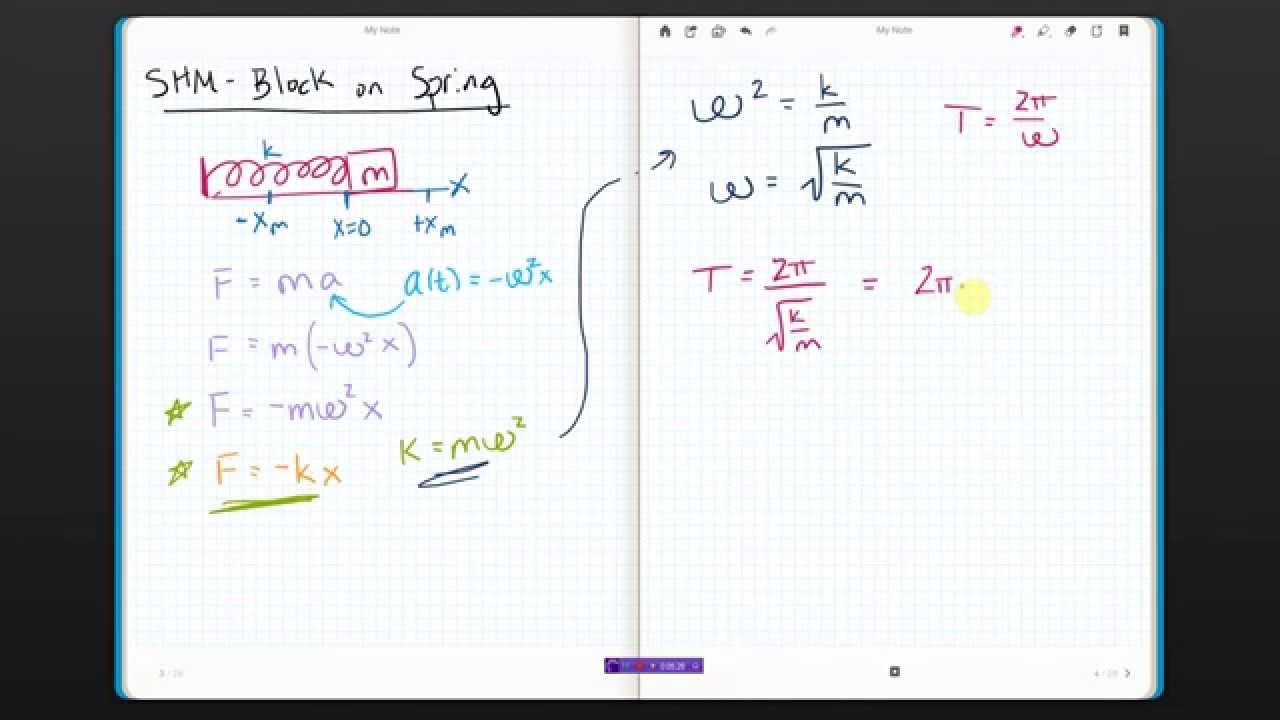 My Note
SHM - Block on Spring
k
m
x
-xm x=0 +xm
F = ma a(t) = -ω²x
F = m(-ω²x)
F = -mω²x
F = -kx K = mω²
3 / 28
My Note
ω² = k/m T = 2π/ω
ω = √(k/m)
T = 2π/√(k/m) = 2π
4 / 28